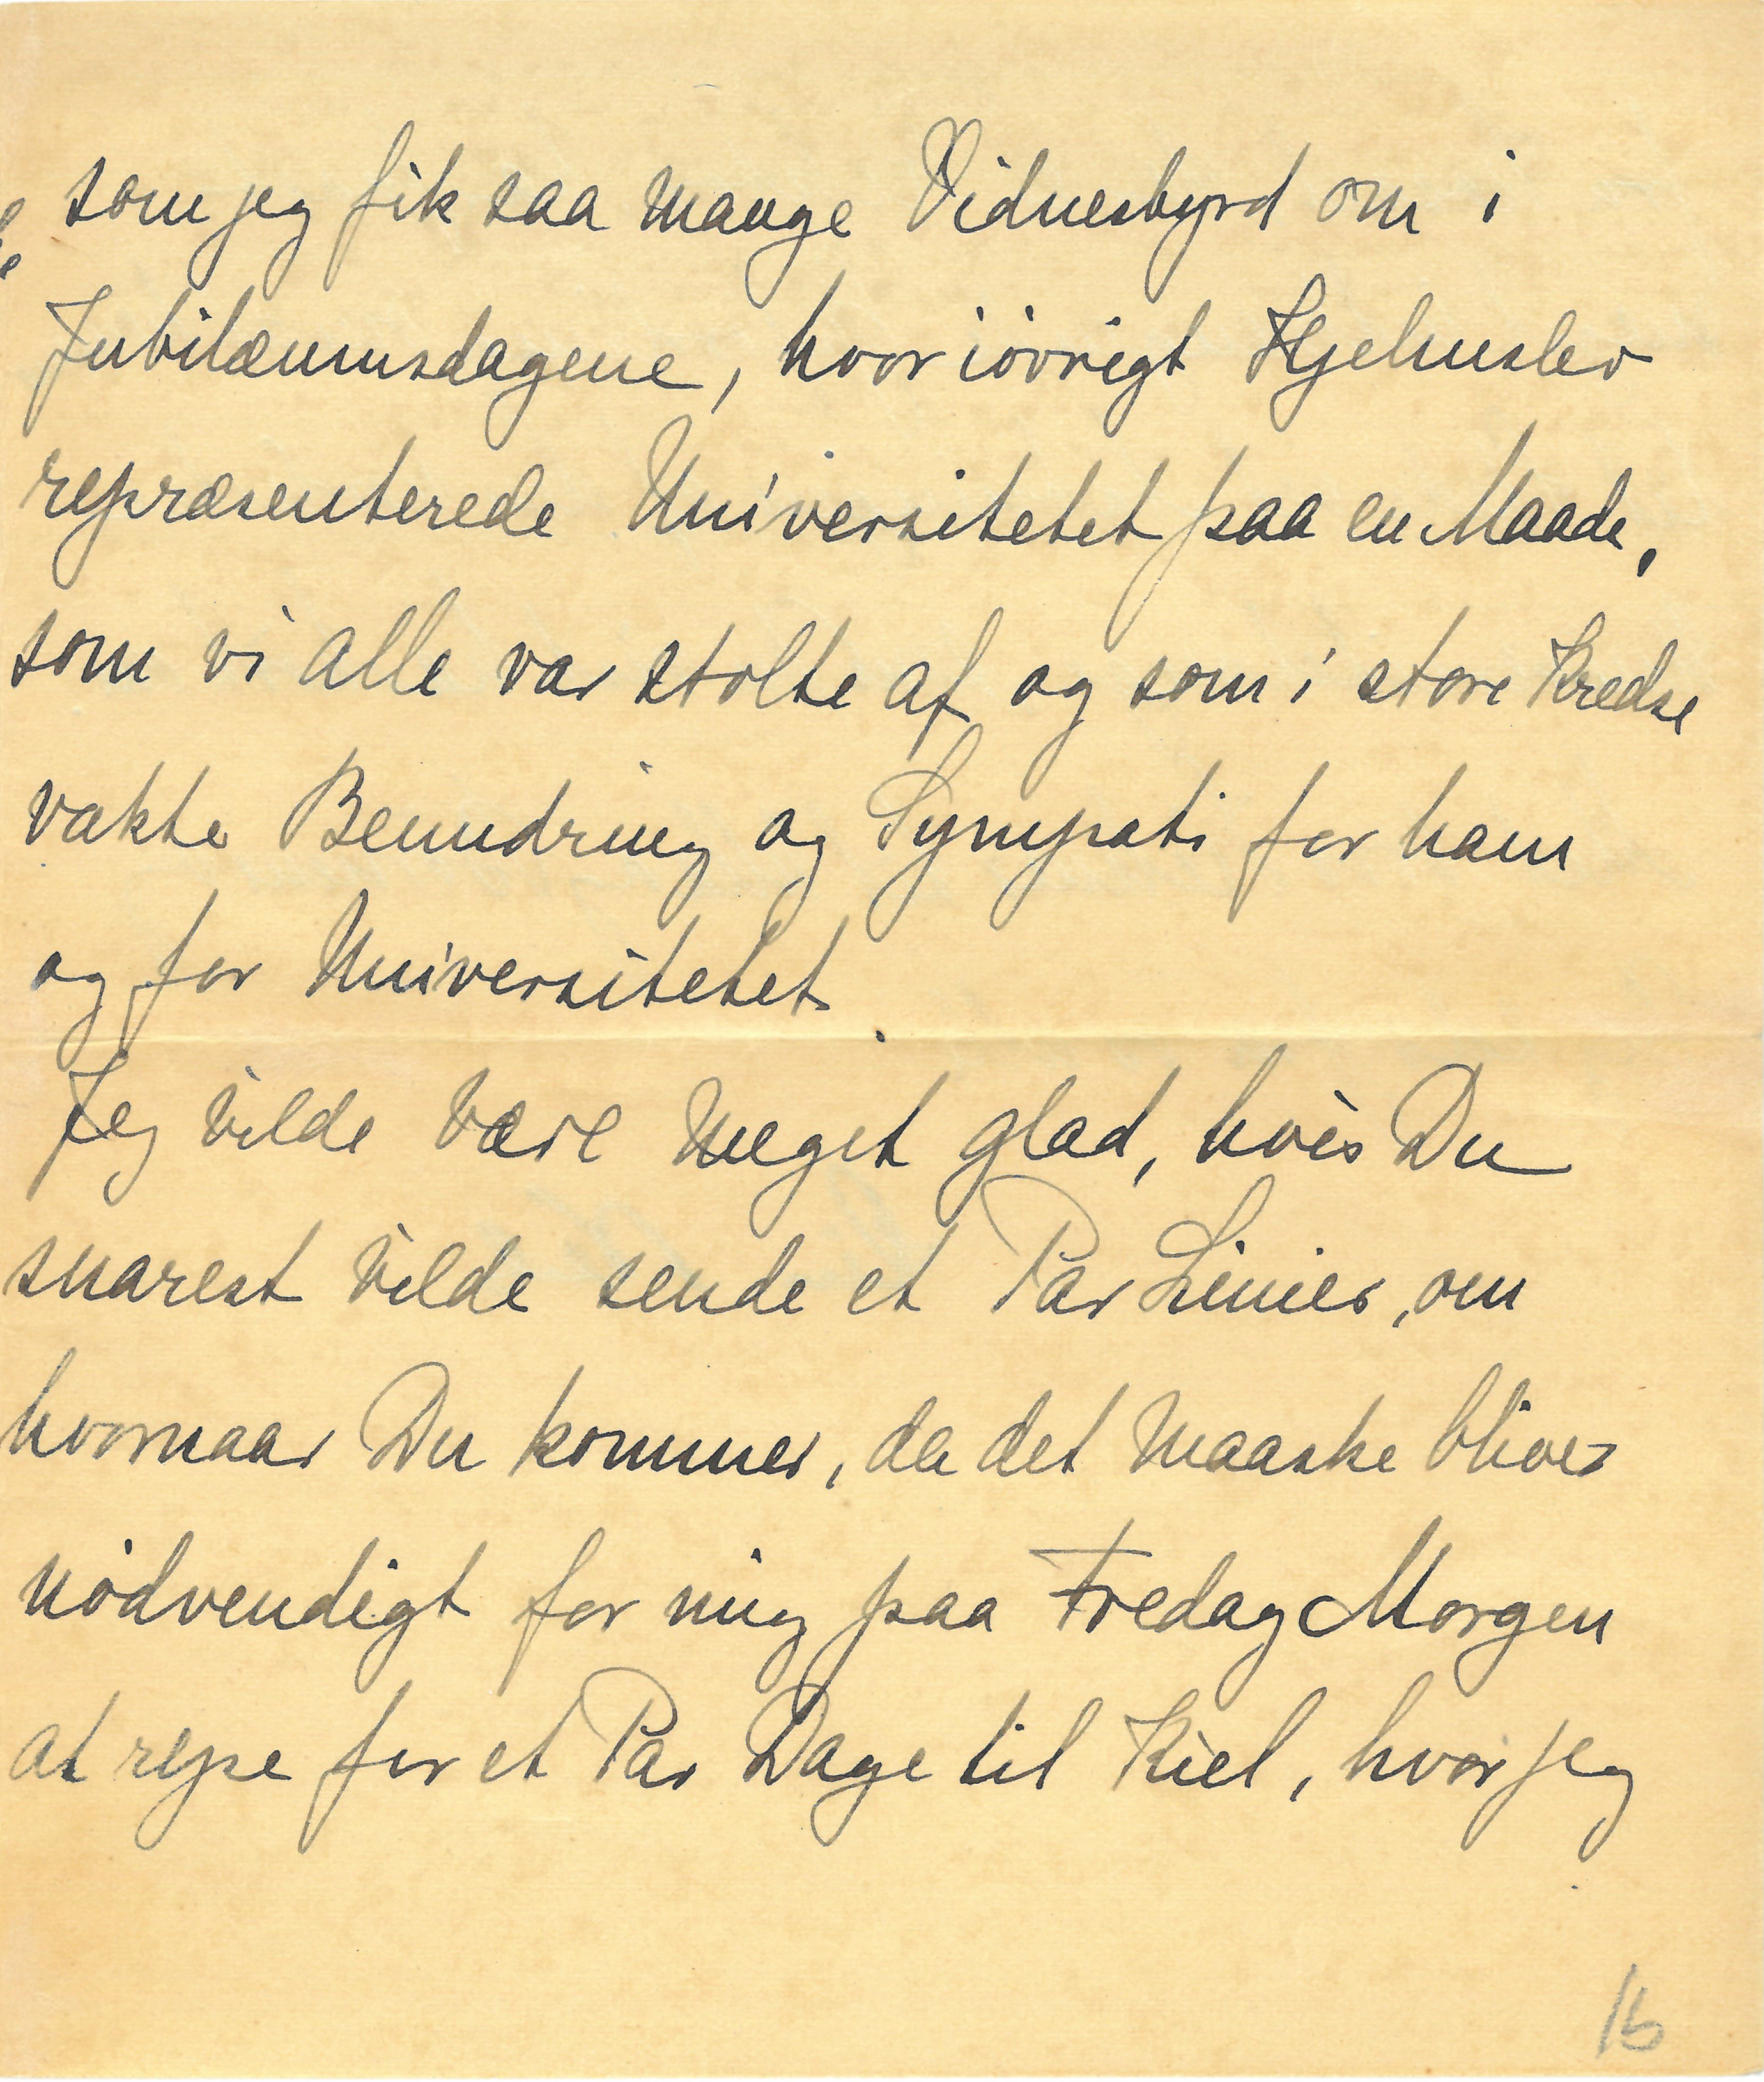 som jeg fik saa mange Vidnesbyrd om i
Jubilæumsdagene, hvor iøvrigt Hjelmslev
repræsenterede Universitetet paa en Maade,
som vi alle var stolte af og som i store Kredse
vakte Beundring og Sympati for ham
og for Universitetet.
Jeg vilde være meget glad, hvis Du
snarest vilde sende et Par Linier, om
hvornaar Du kommer, da det maaske bliver
nødvendigt for mig paa Fredag Morgen
at rejse for et Par Dage til Kiel, hvor jeg